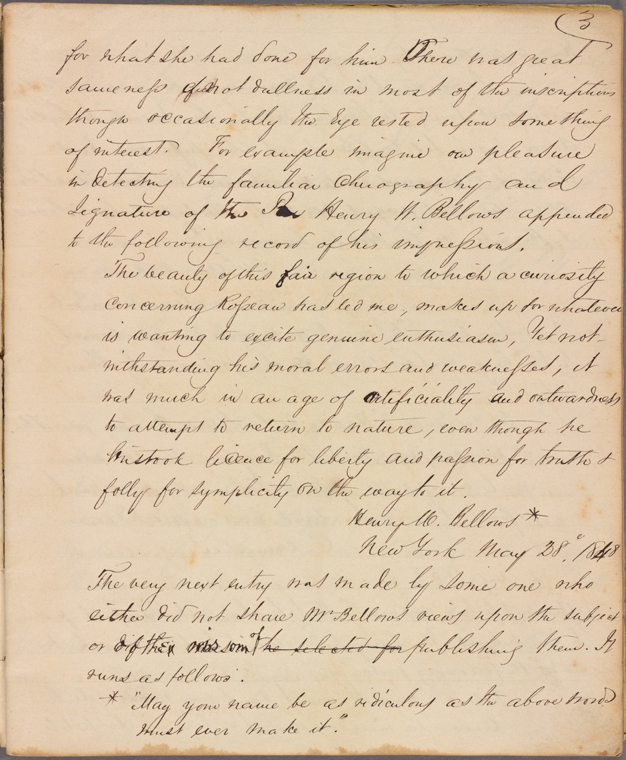 3
for what she had done for him There was great
sameness if not dullness in most of the inscriptions
though occasionally the Eye rested upon something
of interest. For example imagine our pleasure
in detecting the familiar chirography and
signature of the Rev Henry W. Bellows appended
to the following record of his impressions.
The beauty of this fair region to which a curiosity
concerning Rosseau has led me, makes up for whatever
is wanting to excite genuine enthusiasm, Yet not-
withstanding his moral errors and weaknesses, it
was much in an age of artificiality and outwardness
to attempt to return to nature, even though he
mistook licence for liberty and passion for truth &
folly for symplicity on the way to it.
Henry W. Bellows *
New York May 28th. 1848
The very next entry was made by some one who
either did not share Mr Bellows views upon the subject
or of the wisdom of he selected for publishing them. It
runs as follows.
* "May your name be as ridiculous as the above words
must ever make it."